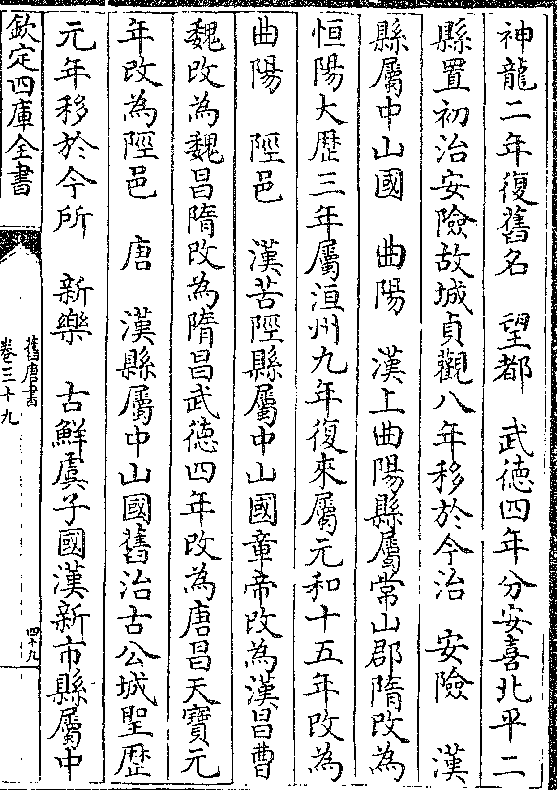 神龍二年復舊名　望都　武徳四年分安喜北平二
縣置初治安險故城貞觀八年移於今治　安險　漢
縣屬中山國　曲陽　漢上曲陽縣屬常山郡隋改為
恒陽大歴三年屬洹州九年復來屬元和十五年改為
曲陽　陘邑　漢苦陘縣屬中山國章帝改為漢昌曹
魏改為魏昌隋改為隋昌武徳四年改為唐昌天寶元
年改為陘邑　唐　漢縣屬中山國舊治古公城聖歴
元年移於今所　新樂　古鮮虞子國漢新市縣屬中
欽定四庫全書
舊唐書
卷三十九
四十九